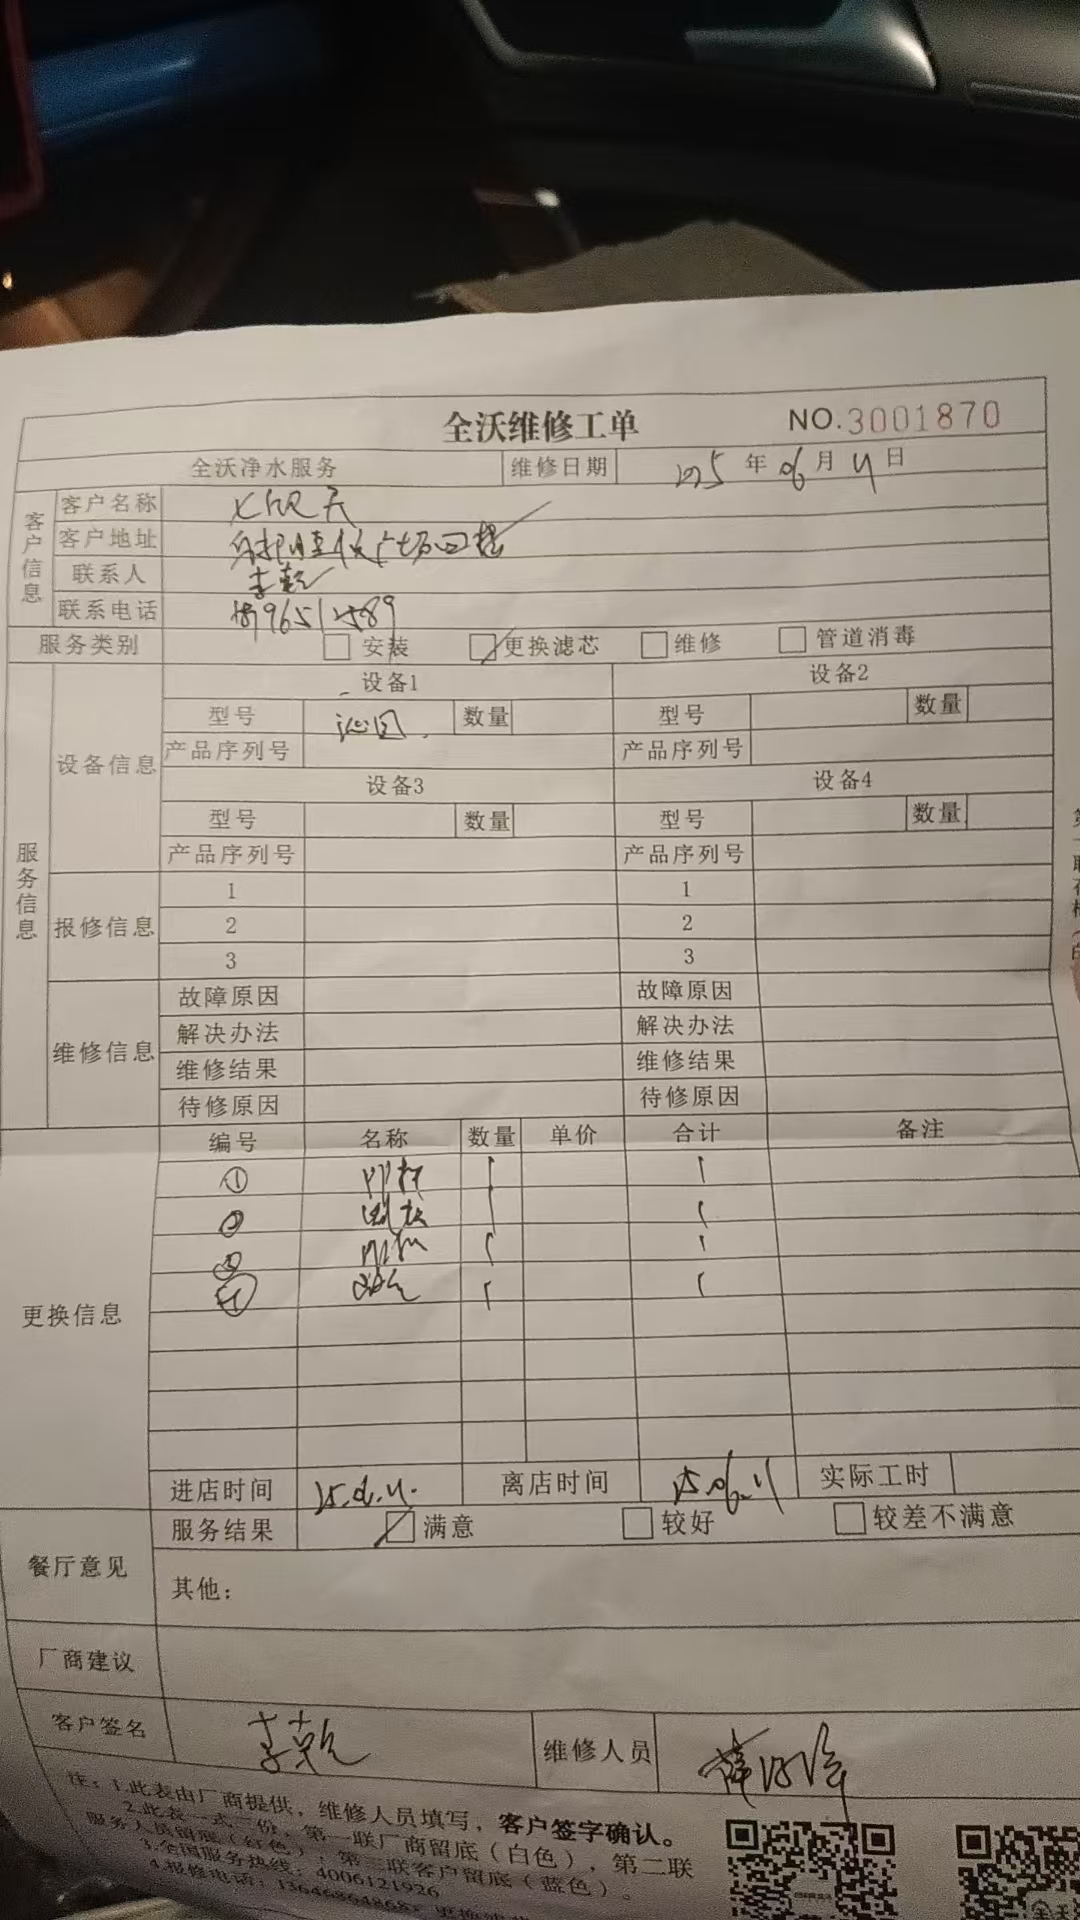 全沃维修工单 NO.3001870
全沃净水服务 维修日期 2025年06月11日
客户信息
客户名称
客户地址 广场四楼
联系人 李乾
联系电话
服务类别 安装 更换滤芯 维修 管道消毒
服务信息
设备信息
设备1 设备2
型号 沁园 数量 型号 数量
产品序列号 产品序列号
设备3 设备4
型号 数量 型号 数量
产品序列号 产品序列号
报修信息
1 1
2 2
3 3
维修信息
故障原因 故障原因
解决办法 解决办法
维修结果 维修结果
待修原因 待修原因
更换信息
编号 名称 数量 单价 合计 备注
① 1 1
② 1 1
③ 1 1
④ 1 1
进店时间 25.6.11. 离店时间 25.06.11 实际工时
餐厅意见
服务结果 满意 较好 较差不满意
其他：
厂商建议
客户签名 李乾 维修人员
注：1.此表由厂商提供，维修人员填写，客户签字确认。
2.此表一式三份，第一联厂商留底（白色），第二联
服务人员留底（红色），第三联客户留底（蓝色）。
3.全国服务热线：4006121926
4.报修电话：13646864868